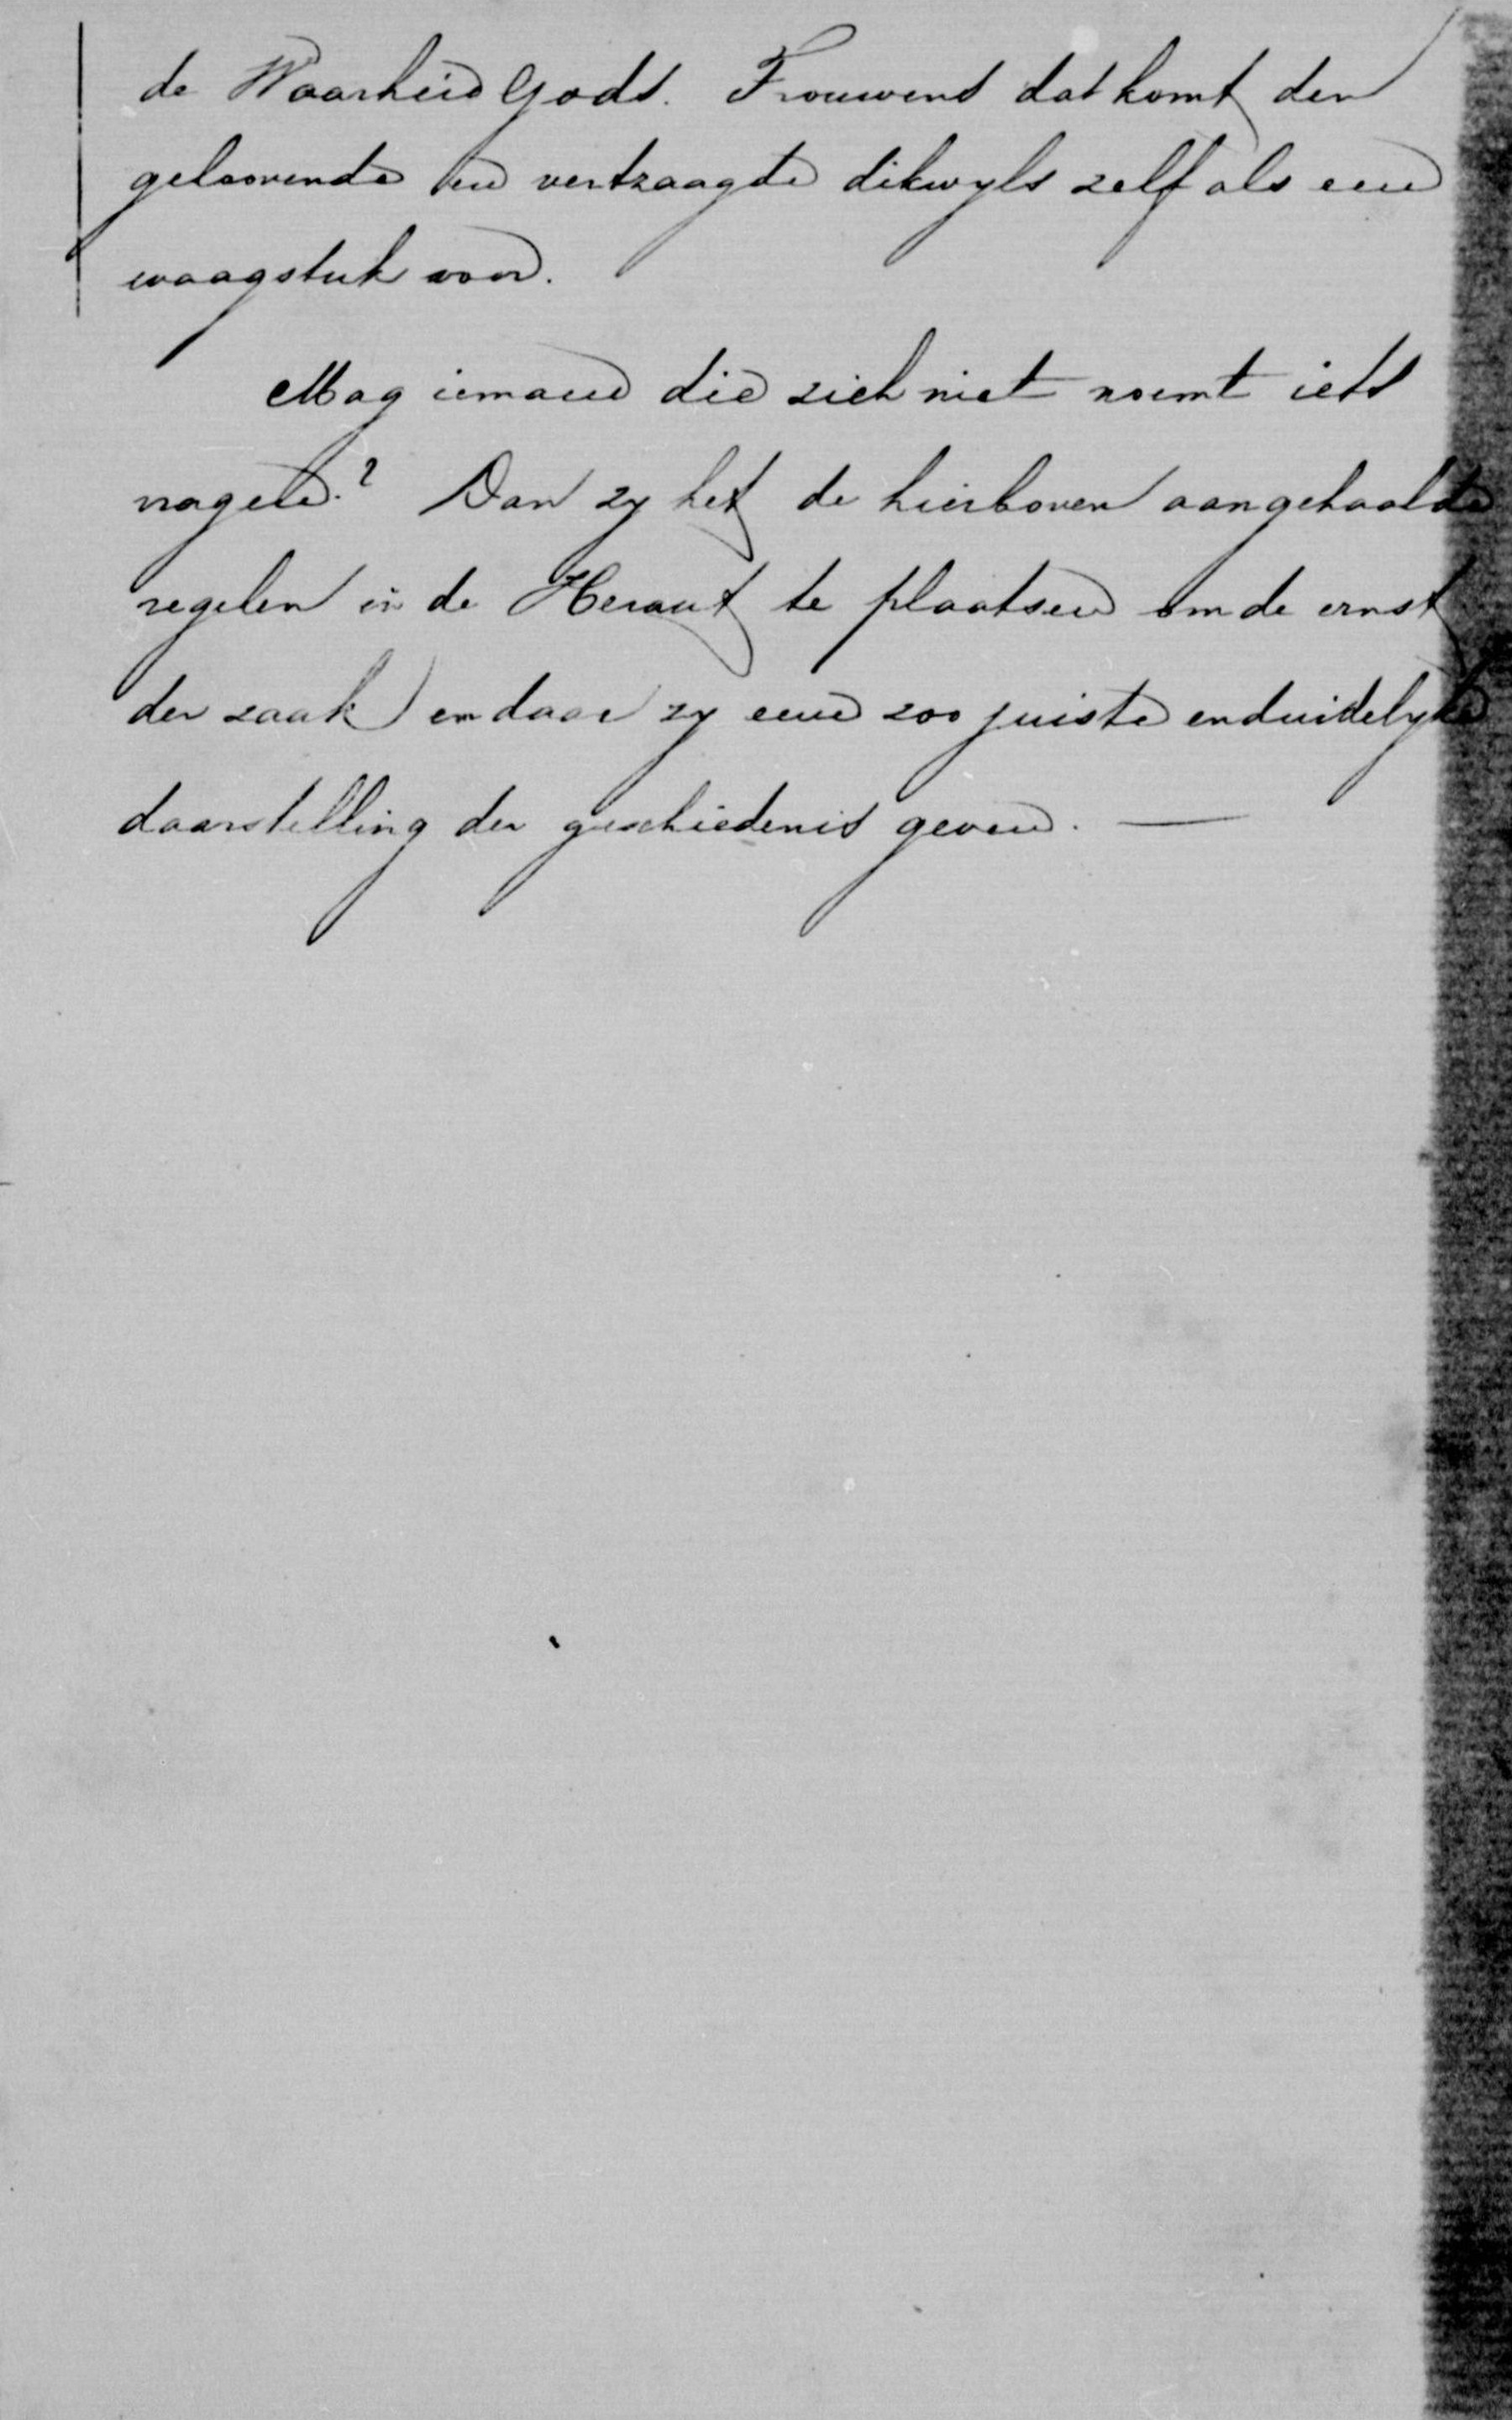 de Waarheid Gods. Trouwens dat komt den
geloovende en vertzaagde dikwyls zelf als een
waagstuk voor.
Mag iemand die zich niet noemt iets
vragen.? Dan zy het de hierboven aangehaalde
regelen in de Heraut te plaatsen om de ernst
der zaak en daar zy eene zoo juiste en duidelyke
daarstelling der geschiedenis geven. —